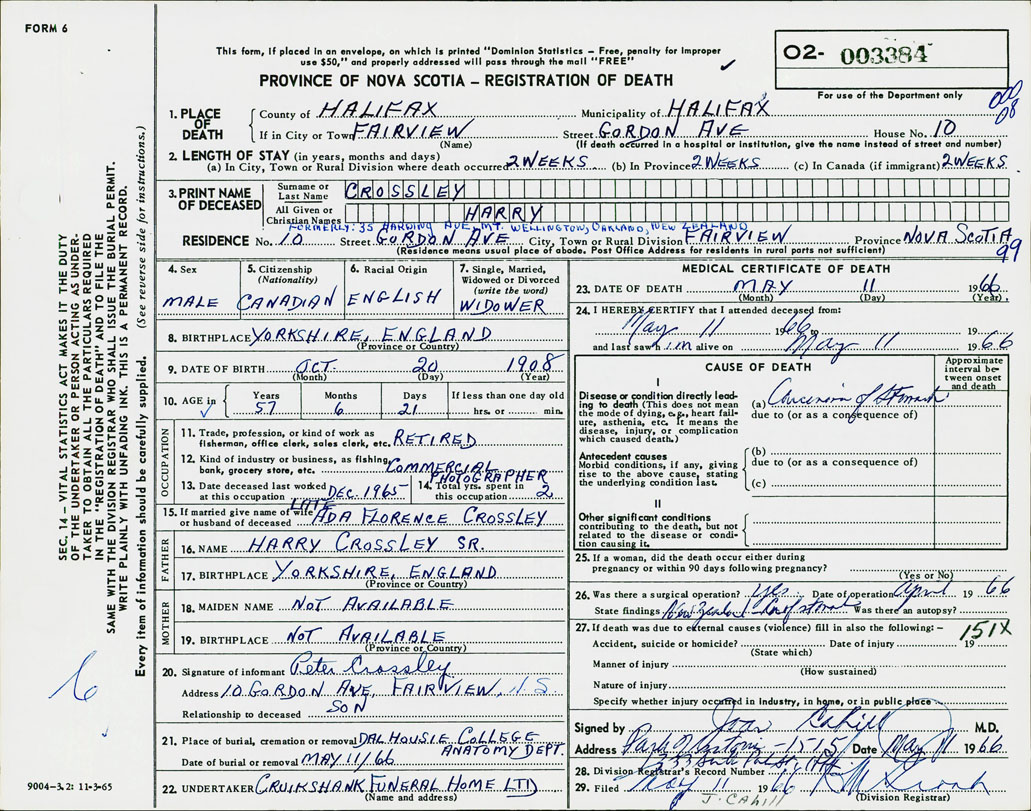 FORM 6
This form, if placed in an envelope, on which is printed "Dominion Statistics - Free, penalty for improper
use $50," and properly addressed will pass through the mail "FREE"
PROVINCE OF NOVA SCOTIA - REGISTRATION OF DEATH
O2- 003384
For use of the Department only
1. PLACE OF DEATH
County of HALIFAX Municipality of HALIFAX
If in City or Town FAIRVIEW Street GORDON AVE House No. 10
(Name) (If death occurred in a hospital or institution, give the name instead of street and number)
2. LENGTH OF STAY (in years, months and days)
(a) In City, Town or Rural Division where death occurred 2 WEEKS (b) In Province 2 WEEKS (c) In Canada (if immigrant) 2 WEEKS
3. PRINT NAME OF DECEASED
Surname or Last Name CROSSLEY
All Given or Christian Names HARRY
FORMERLY: 35 HARDING AVE, MT. WELLINGTON, OAKLAND, NEW ZEALAND
RESIDENCE No. 10 Street GORDON AVE City, Town or Rural Division FAIRVIEW Province NOVA SCOTIA
(Residence means usual place of abode. Post Office Address for residents in rural parts not sufficient)
99
4. Sex MALE
5. Citizenship (Nationality) CANADIAN
6. Racial Origin ENGLISH
7. Single, Married, Widowed or Divorced (write the word) WIDOWER
8. BIRTHPLACE YORKSHIRE, ENGLAND
(Province or Country)
9. DATE OF BIRTH OCT. 20 1908
(Month) (Day) (Year)
10. AGE in Years 57 Months 6 Days 21 If less than one day old hrs. or min.
OCCUPATION
11. Trade, profession, or kind of work as fisherman, office clerk, sales clerk, etc. RETIRED
12. Kind of industry or business, as fishing, bank, grocery store, etc. COMMERCIAL PHOTOGRAPHER
13. Date deceased last worked at this occupation DEC. 1965
14. Total yrs. spent in this occupation 2
15. If married give name of wife or husband of deceased LATE ADA FLORENCE CROSSLEY
FATHER
16. NAME HARRY CROSSLEY SR.
17. BIRTHPLACE YORKSHIRE, ENGLAND
(Province or Country)
MOTHER
18. MAIDEN NAME NOT AVAILABLE
19. BIRTHPLACE NOT AVAILABLE
(Province or Country)
20. Signature of informant Peter Crossley
Address 10 GORDON AVE, FAIRVIEW, N.S.
Relationship to deceased SON
21. Place of burial, cremation or removal DALHOUSIE COLLEGE ANATOMY DEPT.
Date of burial or removal MAY 11/66
22. UNDERTAKER CRUIKSHANK FUNERAL HOME LTD
(Name and address)
MEDICAL CERTIFICATE OF DEATH
23. DATE OF DEATH MAY 11 1966
(Month) (Day) (Year)
24. I HEREBY CERTIFY that I attended deceased from:
May 11 1966 19
and last saw him alive on May 11 1966
CAUSE OF DEATH
Approximate interval between onset and death
I
Disease or condition directly leading to death (This does not mean the mode of dying, e.g., heart failure, asthenia, etc. It means the disease, injury, or complication which caused death.)
(a) of Stomach
due to (or as a consequence of)
Antecedent causes
Morbid conditions, if any, giving rise to the above cause, stating the underlying condition last.
(b)
due to (or as a consequence of)
(c)
II
Other significant conditions contributing to the death, but not related to the disease or condition causing it.
25. If a woman, did the death occur either during pregnancy or within 90 days following pregnancy?
(Yes or No)
26. Was there a surgical operation? yes Date of operation April 1966
State findings New Zealand Was there an autopsy?
27. If death was due to external causes (violence) fill in also the following:-
151X
Accident, suicide or homicide? Date of injury 19
(State which)
Manner of injury
(How sustained)
Nature of injury
Specify whether injury occurred in Industry, in home, or in public place
Signed by Joan Cahill M.D.
Address Date May 11 1966
28. Division Registrar's Record Number
29. Filed May 11 1966
(Division Registrar)
J. Cahill
SEC. 14 - VITAL STATISTICS ACT MAKES IT THE DUTY
OF THE UNDERTAKER OR PERSON ACTING AS UNDERTAKER TO OBTAIN ALL THE PARTICULARS REQUIRED
IN THE "REGISTRATION OF DEATH" AND TO FILE THE
SAME WITH THE DIVISION REGISTRAR WHO SHALL ISSUE THE BURIAL PERMIT.
WRITE PLAINLY WITH UNFADING INK. THIS IS A PERMANENT RECORD.
Every item of information should be carefully supplied. (See reverse side for instructions.)
6
9004-3.2: 11-3-65